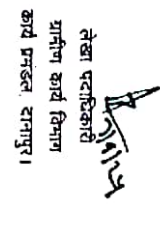 लेखा पदाधिकारी
ग्रामीण कार्य विभाग
कार्य प्रमंडल, दानापुर।